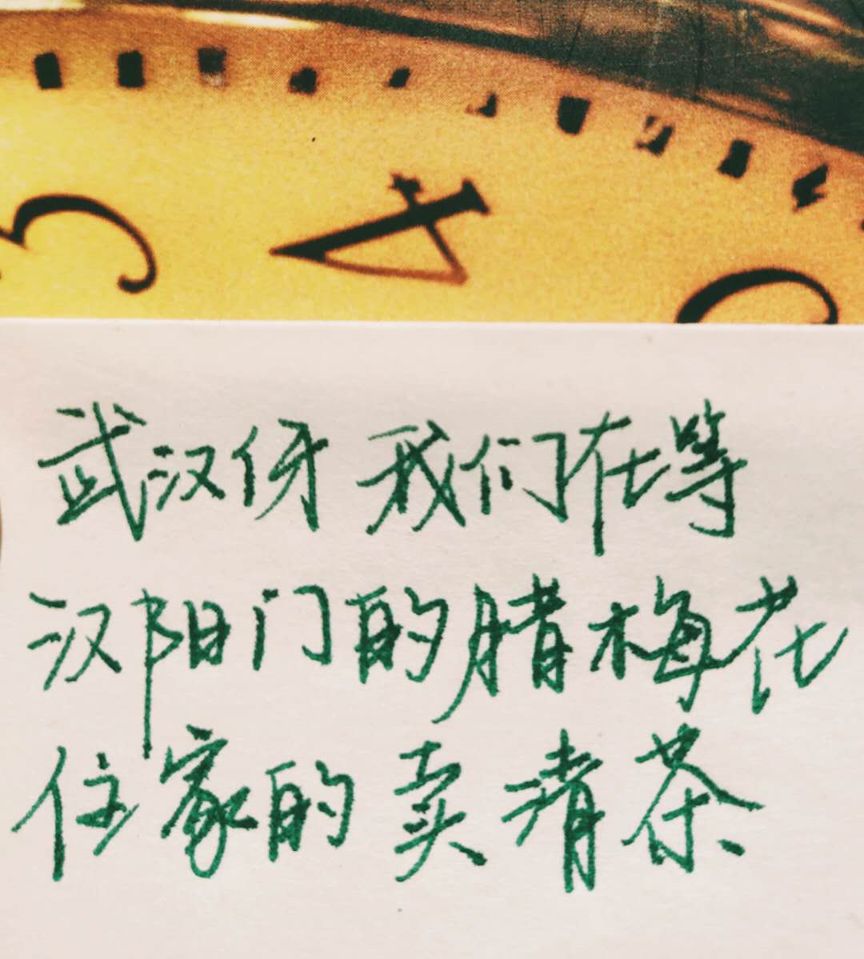 3 4
武汉伢 我们在等
汉阳门的腊梅花
住家的 卖清茶